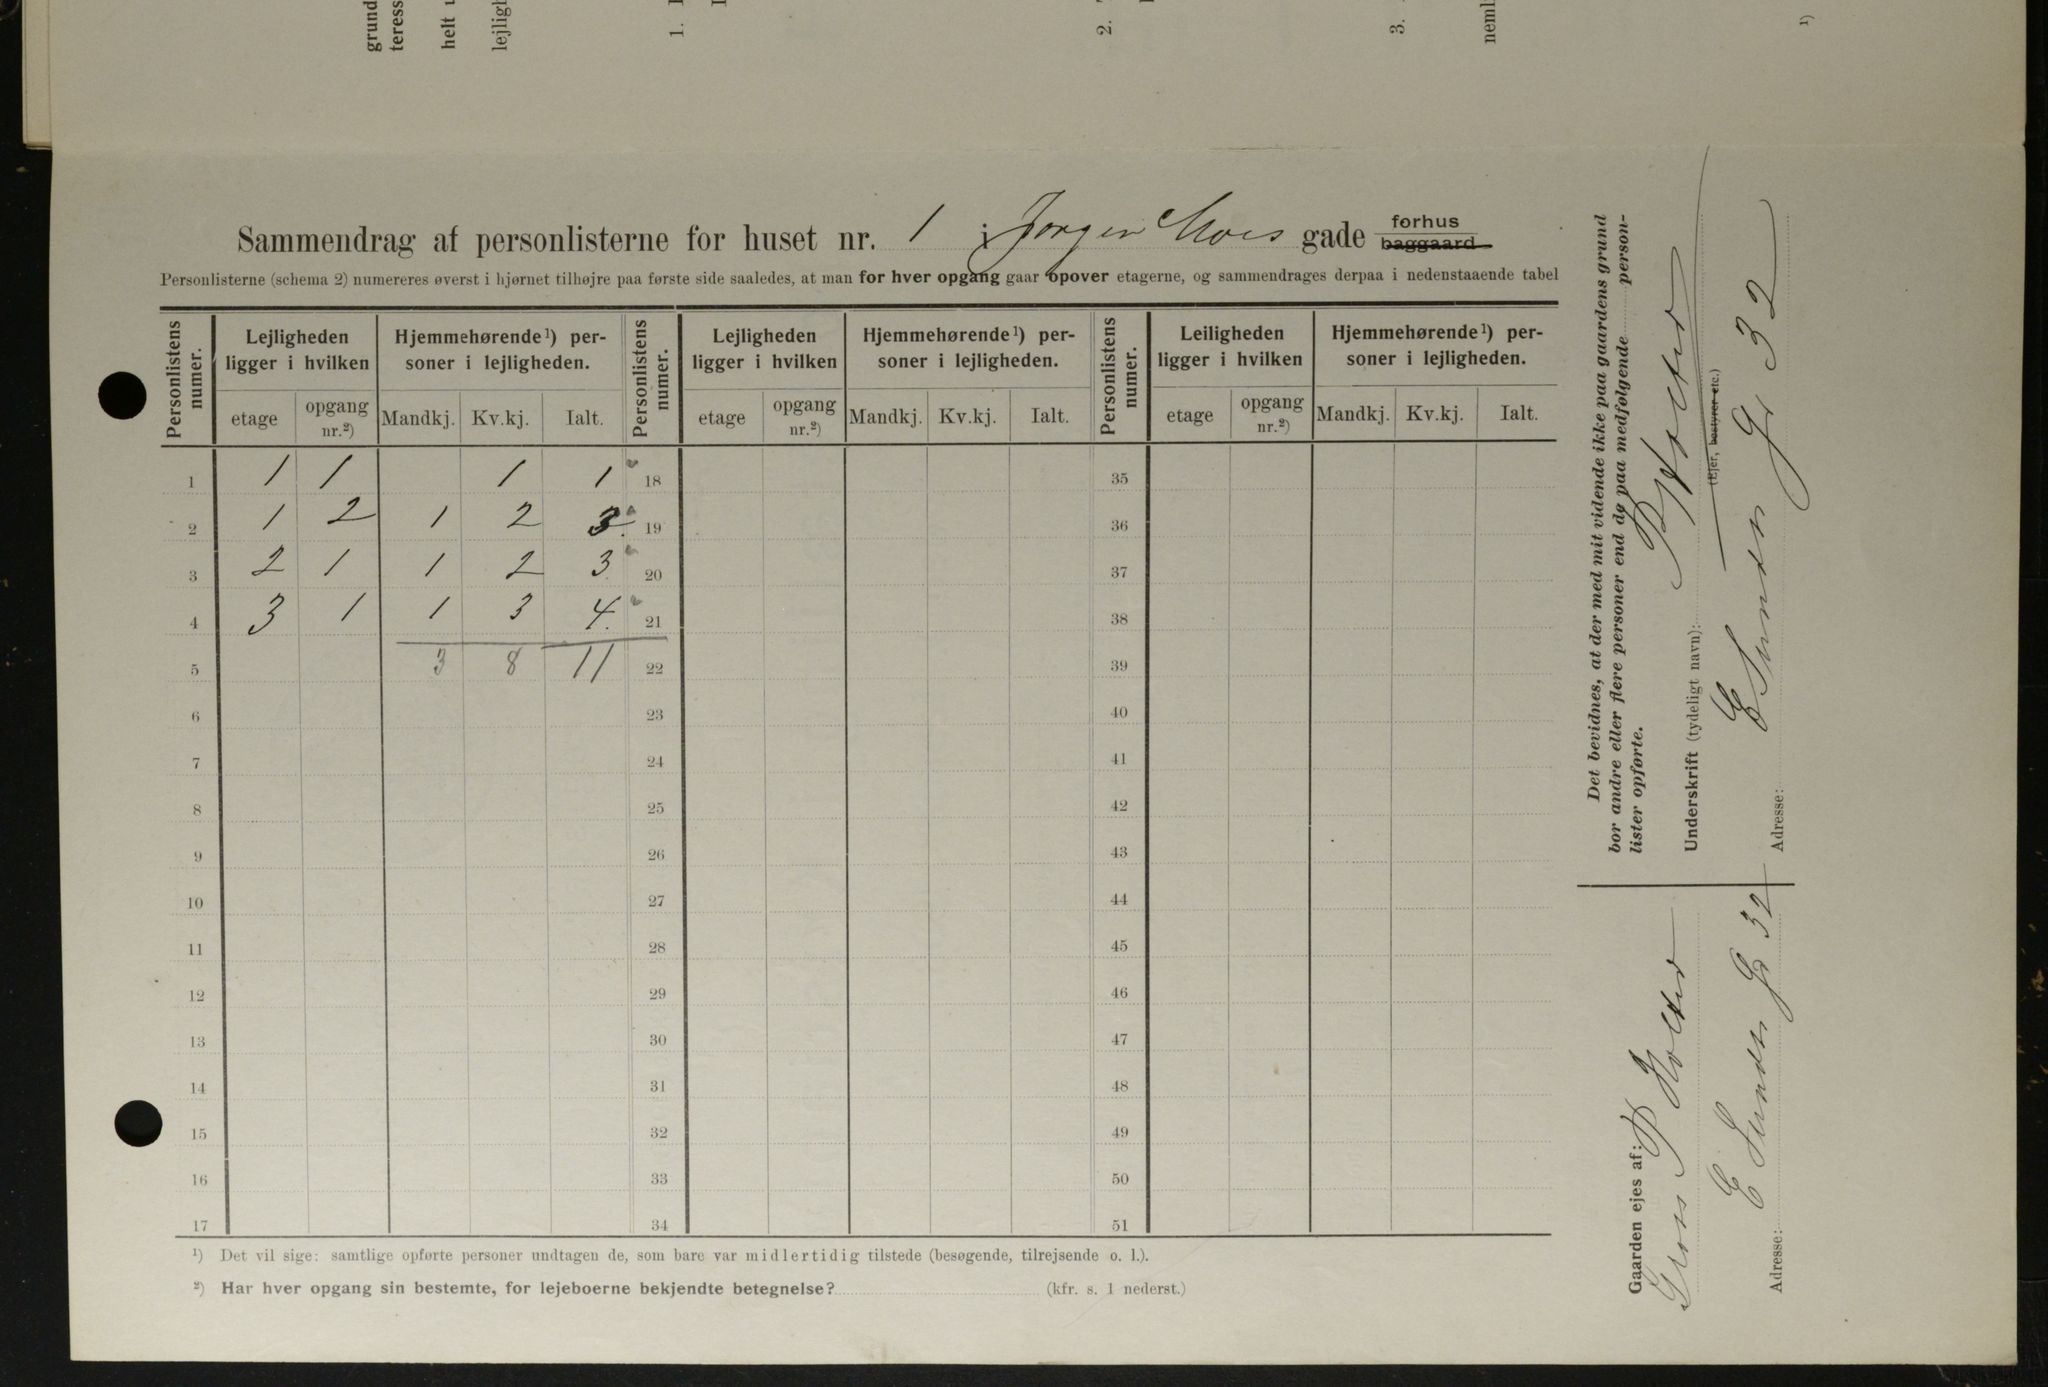 grund
teress
helt u
lejligh
1.
2.
3.
neml
1)
Sammendrag af personlisterne for huset nr. 1 i Jørgen Moes gade forhus
baggaard
Personlisterne (schema 2) numereres øverst i hjørnet tilhøjre paa første side saaledes, at man for hver opgang gaar opover etagerne, og sammendrages derpaa i nedenstaaende tabel
Personlistens numer. Lejligheden ligger i hvilken Hjemmehørende¹) personer i lejligheden. Personlistens numer. Lejligheden ligger i hvilken Hjemmehørende¹) personer i lejligheden. Personlistens numer. Leiligheden ligger i hvilken Hjemmehørende¹) personer i lejligheden.
etage opgang nr.²) Mandkj. Kv.kj. Ialt. etage opgang nr.²) Mandkj. Kv.kj. Ialt. etage opgang nr.²) Mandkj. Kv.kj. Ialt.
1 1 1 1 1 18 35
2 1 2 1 2 3. 19 36
3 2 1 1 2 3 20 37
4 3 1 1 3 4. 21 38
5 3 8 11 22 39
6 23 40
7 24 41
8 25 42
9 26 43
10 27 44
11 28 45
12 29 46
13 30 47
14 31 48
15 32 49
16 33 50
17 34 51
¹) Det vil sige: samtlige opførte personer undtagen de, som bare var midlertidig tilstede (besøgende, tilrejsende o. l.).
²) Har hver opgang sin bestemte, for lejeboerne bekjendte betegnelse? (kfr. s. 1 nederst.)
Det bevidnes, at der med mit vidende ikke paa gaardens grund
bor andre eller flere personer end de paa medfølgende person-
lister opførte.
Underskrift (tydeligt navn): P Holter
(Ejer, bestyrer etc.)
Adresse: E Sunds G 32
Gaarden ejes af: Gros P Holter
Adresse: E Sunds G 32